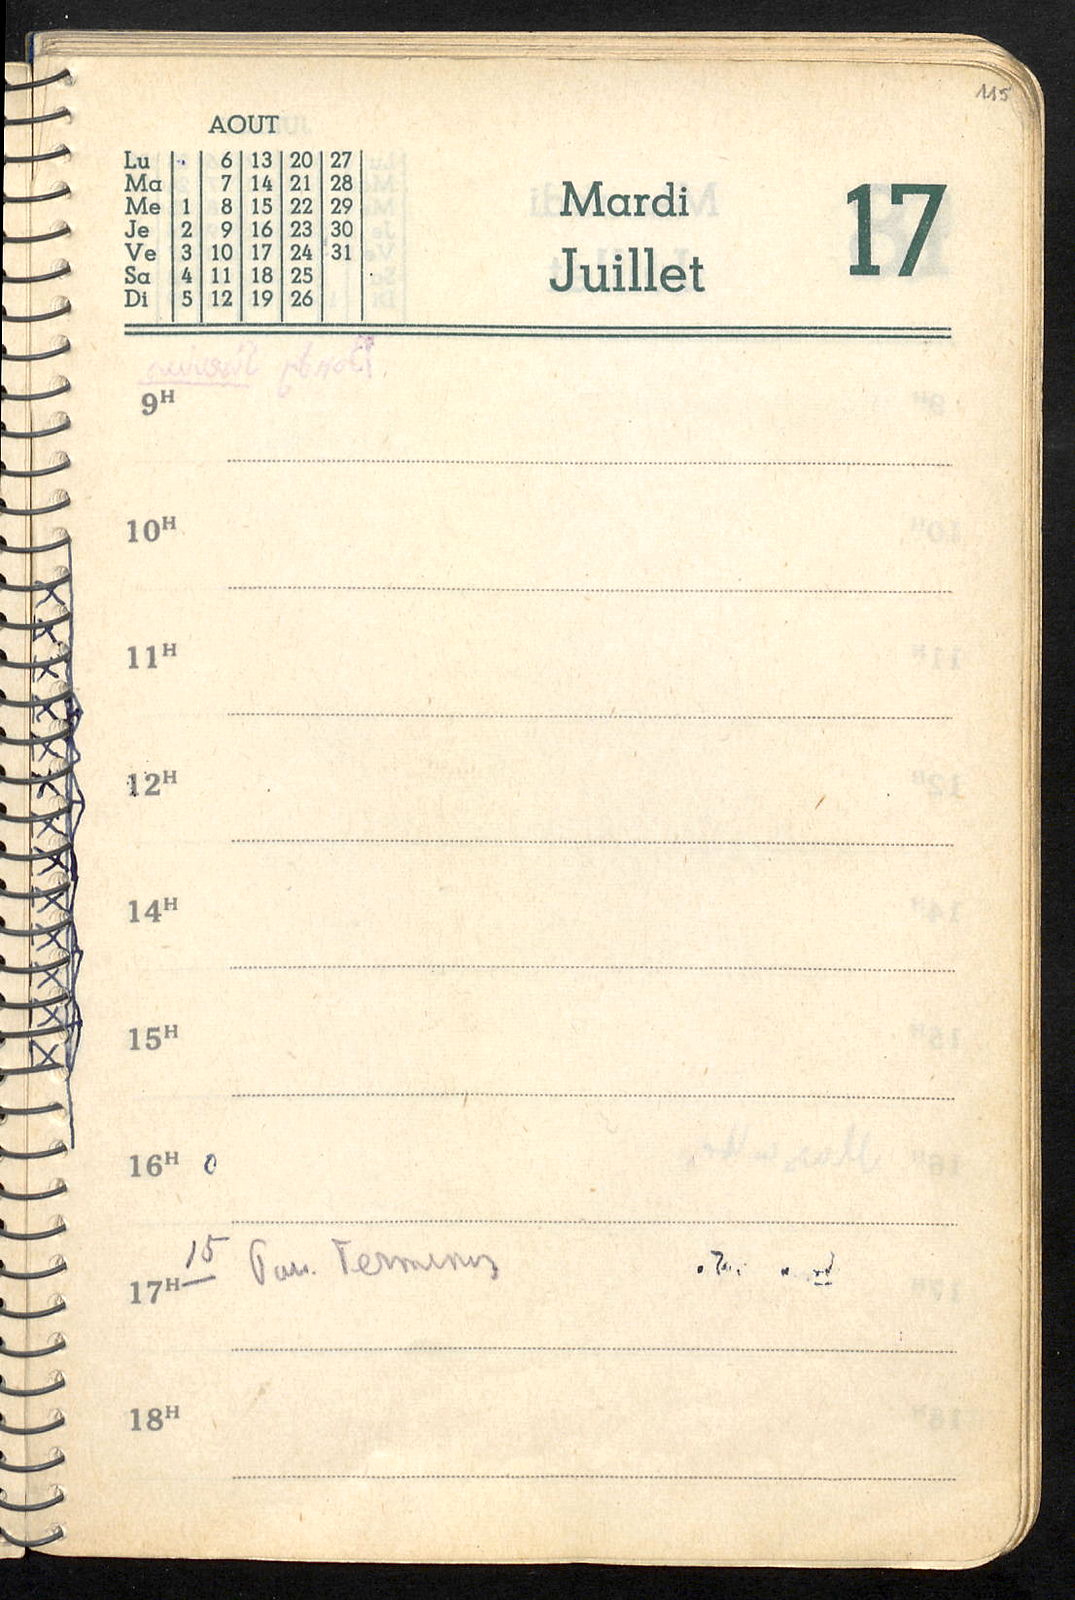 115
AOUT
Lu 6 13 20 27
Ma 7 14 21 28
Me 1 8 15 22 29
Je 2 9 16 23 30
Ve 3 10 17 24 31
Sa 4 11 18 25
Di 5 12 19 26
Mardi
Juillet
17
9H
10H
11H
12H
14H
15H
16H
17H 15 Terminus
18H